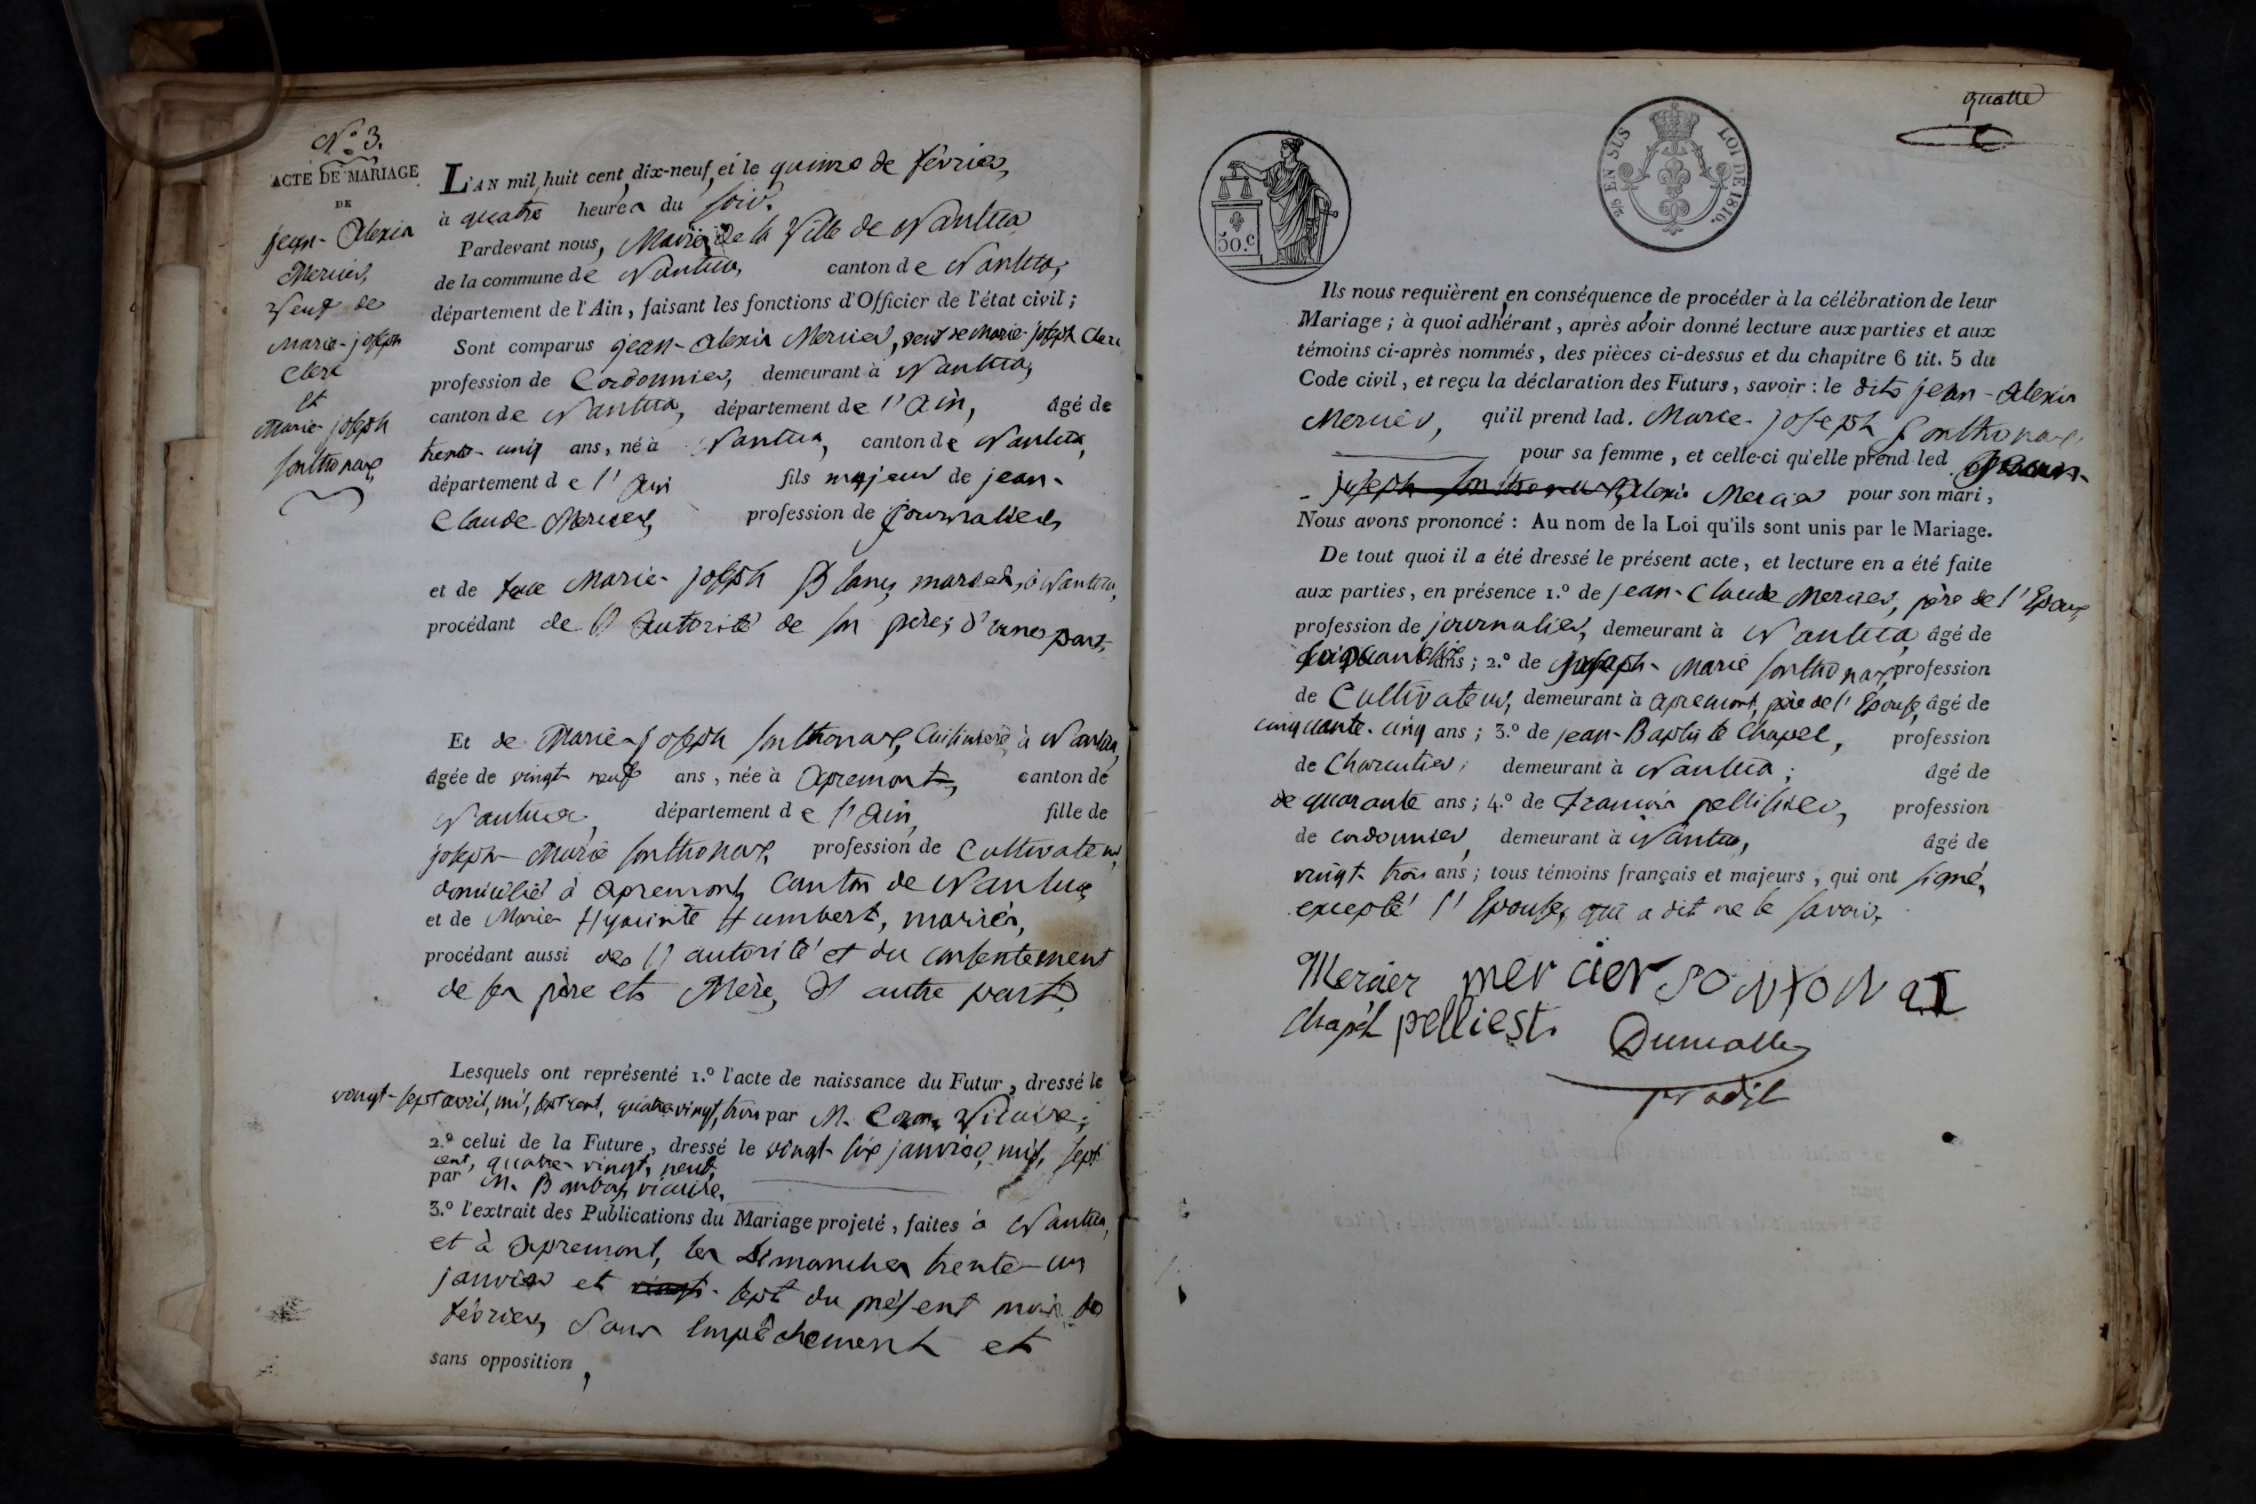 N.º 3.
ACTE DE MARIAGE
DE
jean-Alexis
Mercier,
veuf de
Marie-joseph
Clerc
et
Marie-joseph
Sonthonax
L'AN mil huit cent dix-neuf, et le quinze de février,
à quatre heures du soir.
Pardevant nous, Maire de la Ville de Nantua
de la commune de Nantua, canton de Nantua,
département de l'Ain, faisant les fonctions d'Officier de l'état civil ;
Sont comparus jean-alexis Mercier, veuf de Marie-joseph Clerc
profession de Cordonnier, demeurant à Nantua,
canton de Nantua, département de l'Ain, âgé de
trente-cinq ans, né à Nantua, canton de Nantua,
département de l'Ain fils majeur de jean-
Claude Mercier, profession de journalier,
et de feue Marie-joseph Blanc, mariés, à Nantua,
procédant de l'Autorité de son père, d'une part,
Et de Marie-joseph Sonthonax, Cuisinière à Nantua
âgée de vingt neuf ans, née à Apremont, canton de
Nantua, département de l'Ain, fille de
joseph-Marie Sonthonax, profession de Cultivateur,
domicilié à apremont, Canton de Nantua
et de Marie-Hyacinte Humbert, mariés,
procédant aussi de l'autorité et du consentement
de ses père et Mère, d'autre part.
Lesquels ont représenté 1.º l'acte de naissance du Futur, dressé le
vingt-sept avril, mil, sept cent, quatre vingt, trois par M. Vicaire ;
2.º celui de la Future, dressé le vingt-six janvier, mil, sept
cent, quatre-vingt, neuf,
par M. vicaire,
3.º l'extrait des Publications du Mariage projeté, faites à Nantua,
et à Apremont, les Dimanches trente-un
janvier et vingt-sept du présent mois de
février, Sans Empêchement et
sans opposition,
quatre
50.c
2/5 EN SUS LOI DE 1816.
Ils nous requièrent en conséquence de procéder à la célébration de leur
Mariage ; à quoi adhérant, après avoir donné lecture aux parties et aux
témoins ci-après nommés, des pièces ci-dessus et du chapitre 6 tit. 5 du
Code civil, et reçu la déclaration des Futurs, savoir : le dit jean-Alexis
Mercier, qu'il prend lad. Marie-joseph Sonthonax
pour sa femme, et celle-ci qu'elle prend led.
joseph Sonthonax, Alexis Mercier pour son mari,
Nous avons prononcé : Au nom de la Loi qu'ils sont unis par le Mariage.
De tout quoi il a été dressé le présent acte, et lecture en a été faite
aux parties, en présence 1.º de jean-Claude Mercier, père de l'Epoux,
profession de journalier, demeurant à Nantua, âgé de
ans ; 2.º de joseph-Marie Sonthonax, profession
de Cultivateur, demeurant à apremont, père de l'Epouse, âgé de
cinquante-cinq ans ; 3.º de jean-Baptiste Chapel, profession
de Charcutier, demeurant à Nantua, âgé de
de quarante ans ; 4.º de francois pellissier, profession
de cordonnier, demeurant à Nantua, âgé de
vingt-trois ans ; tous témoins français et majeurs, qui ont signé,
excepté l'Epouse, qui a dit ne le savoir.
Mercier mercier SONTONAX
Chapel pelliest.